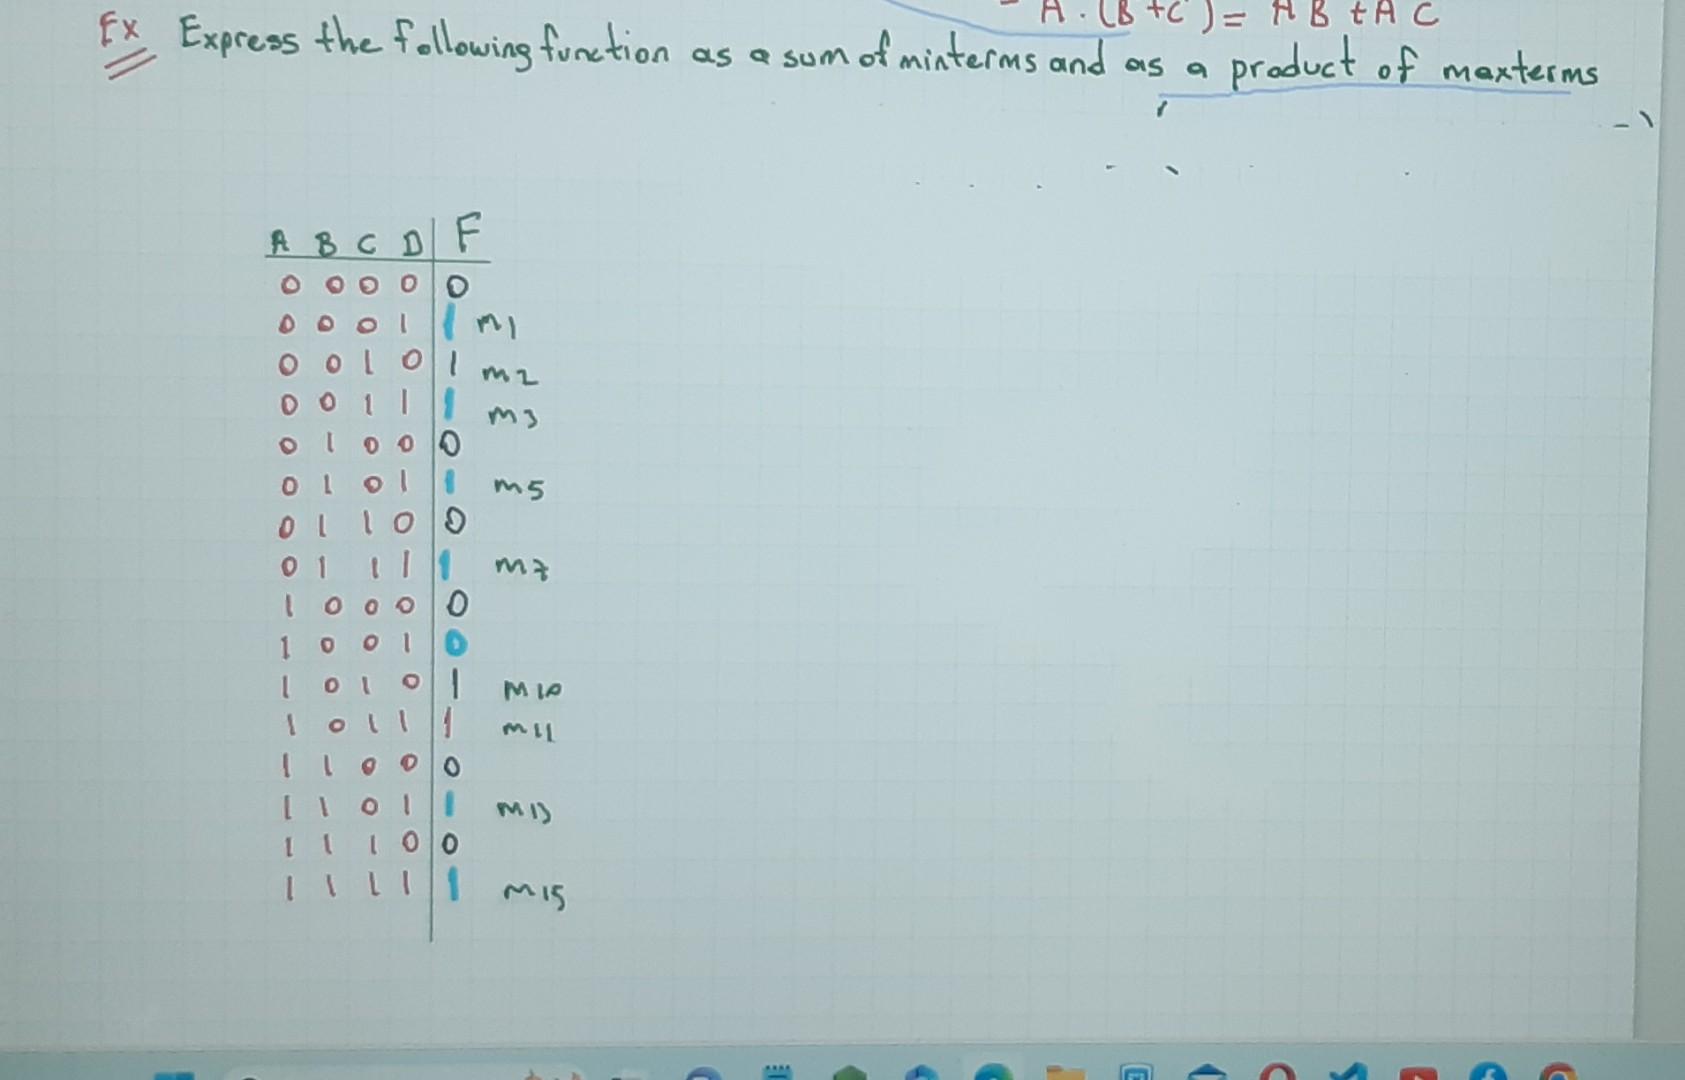 A . (B + C) = A B + A C
Ex Express the following function as a sum of minterms and as a product of maxterms
A B C D F
0 0 0 0 0
0 0 0 1 1 m1
0 0 1 0 1 m2
0 0 1 1 1 m3
0 1 0 0 0
0 1 0 1 1 m5
0 1 1 0 0
0 1 1 1 1 m7
1 0 0 0 0
1 0 0 1 0
1 0 1 0 1 m10
1 0 1 1 1 m11
1 1 0 0 0
1 1 0 1 1 m13
1 1 1 0 0
1 1 1 1 1 m15